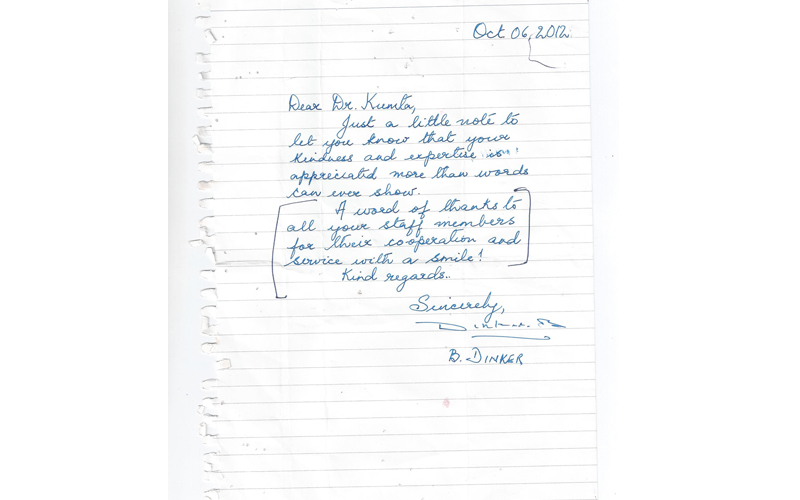 Oct 06, 2012
Dear Dr. Kumta,
Just a little note to
let you know that your
kindness and expertise is
appreciated more than words
can ever show.
A word of thanks to
all your staff members
for their co-operation and
service with a smile!
Kind regards..
Sincerely,
Dinker. B
B. DINKER